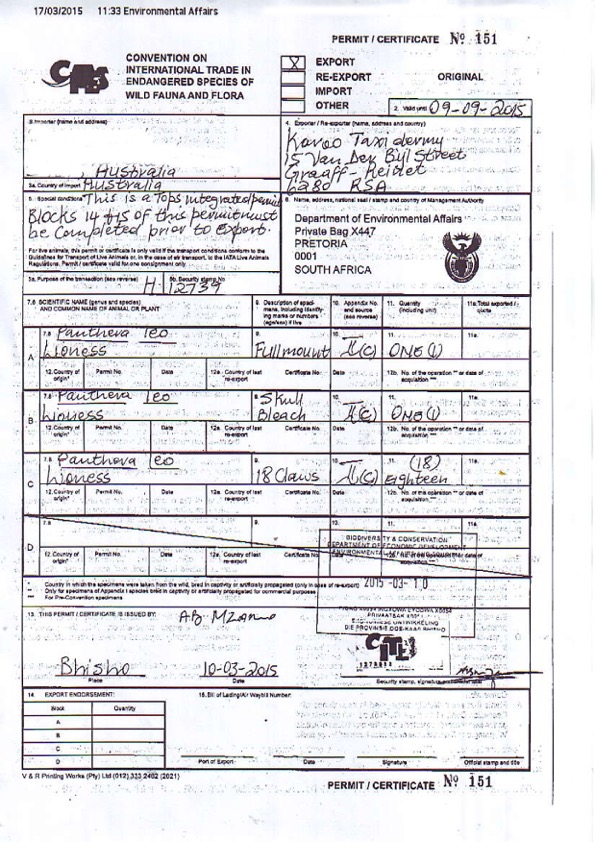 17/03/2015 11:33 Environmental Affairs
PERMIT / CERTIFICATE No 151
CITES
CONVENTION ON
INTERNATIONAL TRADE IN
ENDANGERED SPECIES OF
WILD FAUNA AND FLORA
X EXPORT
RE-EXPORT
IMPORT
OTHER
ORIGINAL
2. Valid until 09-09-2015
3. Importer (name and address)
, Australia
3a. Country of import Australia
4. Exporter / Re-exporter (name, address and country)
Karoo Taxidermy
15 Van Der Byl Street
Graaff-Reinet
6280 RSA
5. Special conditions This is a Tops integrated permit
Blocks 14 +15 of this permit must
be completed prior to Export.
For live animals, this permit or certificate is only valid if the transport conditions conform to the
Guidelines for Transport of Live Animals or, in the case of air transport, to the IATA Live Animals
Regulations. Permit/certificate valid for one consignment only.
6. Name, address, national seal / stamp and country of Management Authority
Department of Environmental Affairs
Private Bag X447
PRETORIA
0001
SOUTH AFRICA
5a. Purpose of the transaction (see reverse) H
5b. Security stamp No. 12739
7.8 SCIENTIFIC NAME (genus and species)
AND COMMON NAME OF ANIMAL OR PLANT
9. Description of specimens, including identifying marks or numbers (age/sex) if live
10. Appendix No. and source (see reverse)
11. Quantity (including unit)
11a. Total exported / quota
A
7.8 Panthera leo
Lioness
9. Fullmount
10. II(C)
11. ONE (1)
11a.
12. Country of origin* Permit No. Date 12a. Country of last re-export Certificate No. Date 12b. No. of the operation ** or date of acquisition ***
B
7.8 Panthera leo
Lioness
9. Skull
Bleach
10. II(C)
11. ONE (1)
11a.
12. Country of origin* Permit No. Date 12a. Country of last re-export Certificate No. Date 12b. No. of the operation ** or date of acquisition ***
C
7.8 Panthera leo
Lioness
9. 18 Claws
10. II(C)
11. (18)
Eighteen
11a.
12. Country of origin* Permit No. Date 12a. Country of last re-export Certificate No. Date 12b. No. of the operation ** or date of acquisition ***
D
7.8 9. 10. 11. 11a.
12. Country of origin* Permit No. Date 12a. Country of last re-export Certificate No.
BIODIVERSITY & CONSERVATION
DEPARTMENT OF ECONOMIC DEVELOPMENT
2015 -03- 10
* Country in which the specimens were taken from the wild, bred in captivity or artificially propagated (only in case of re-export)
** Only for specimens of Appendix I species bred in captivity or artificially propagated for commercial purposes
*** For Pre-Convention specimens
13. THIS PERMIT / CERTIFICATE IS ISSUED BY:
Bhisho
Place
10-03-2015
Date
CITES
Security stamp, signature
14. EXPORT ENDORSEMENT:
Block Quantity
A
B
C
D
15. Bill of Lading/Air Waybill Number:
Port of Export Date Signature Official stamp and title
V & R Printing Works (Pty) Ltd (012) 333 2462 (2021)
PERMIT / CERTIFICATE No 151